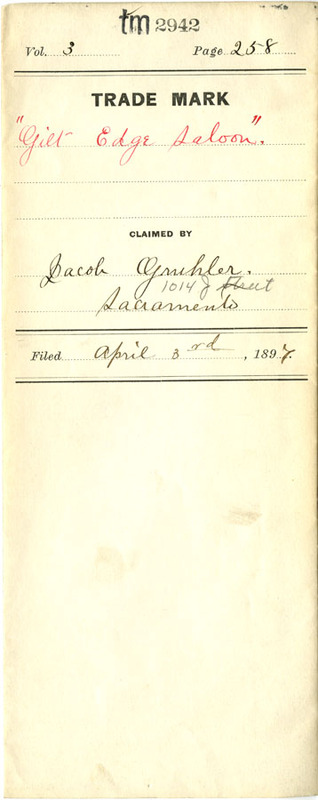 tm 2942
Vol. 3 Page 258
TRADE MARK
"Gilt Edge Saloon".
CLAIMED BY
Jacob Gruhler.
1014 J Street
Sacramento
Filed April 3rd, 1897.